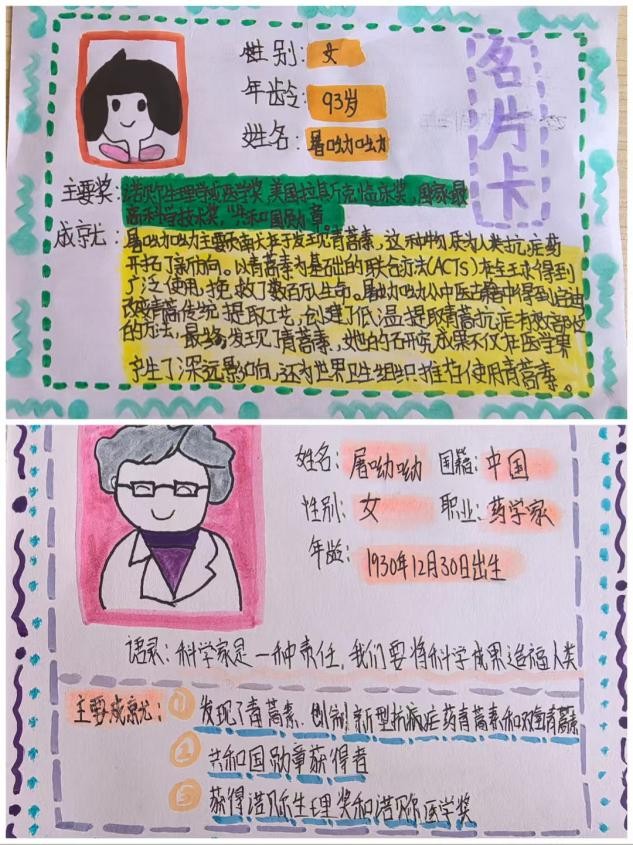 名片卡
性别: 女
年龄: 93岁
姓名: 屠呦呦
主要奖: 诺贝尔生理学或医学奖 美国拉斯克临床奖, 国家最
高科学技术奖, "共和国勋章
成京尤: 屠呦呦主要贡献在于发现青蒿素, 这种物质为人类抗疟药
开拓了新方向。以青蒿素为基础的联合疗法(ACTS)在全球得到
广泛使用, 挽救了数百万人生命。屠呦呦从中医古籍中得到启迪
改变青蒿传统提取工艺, 创建了低温提取青蒿抗疟有效部位
的方法, 最终发现了青蒿素, 她的研究成果不仅在医学界
产生了深远影响, 还为世界卫生组织推荐使用青蒿素。
姓名: 屠呦呦 国籍: 中国
性别: 女 职业: 药学家
年龄: 1930年12月30日出生
语录: 科学家是一种责任, 我们要将科学成果造福人类
主要成京尤: ① 发现了青蒿素, 创制新型抗疟药青蒿素和双氢青蒿素
② 共和国勋章获得者
③ 获得诺贝尔生理奖和诺贝尔医学奖